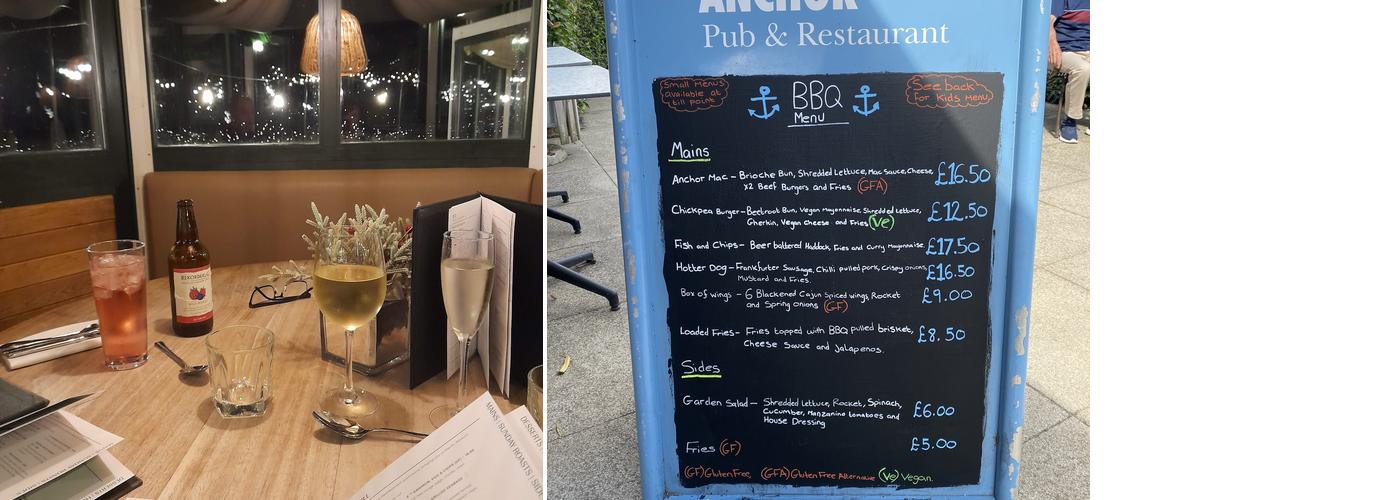 REKORDERLIG
MAINS | SUNDAY ROASTS |
DESSERTS
ANCHOR
Pub & Restaurant
Small Menus
available at
till point
BBQ
Menu
See back
for Kids Menu
Mains
Anchor Mac - Brioche Bun, Shredded Lettuce, Mac Sauce, Cheese, £16.50
x2 Beef Burgers and Fries (GFA)
Chickpea Burger - Beetroot Bun, Vegan Mayonnaise, Shredded Lettuce, £12.50
Gherkin, Vegan Cheese and Fries (Ve)
Fish and Chips - Beer battered Haddock, Fries and Curry Mayonnaise. £17.50
Hotter Dog - Frankfurter Sausage, Chilli pulled pork, Crispy onions, £16.50
Mustard and Fries.
Box of wings - 6 Blackened Cajun Spiced wings, Rocket £9.00
and Spring onions (GF)
Loaded Fries - Fries topped with BBQ pulled brisket, £8.50
Cheese Sauce and jalapenos.
Sides
Garden Salad - Shredded Lettuce, Rocket, Spinach, £6.00
Cucumber, Manzanino tomatoes and
House Dressing
Fries (GF) £5.00
(GF) Gluten Free, (GFA) Gluten Free Alternative (Ve) Vegan.